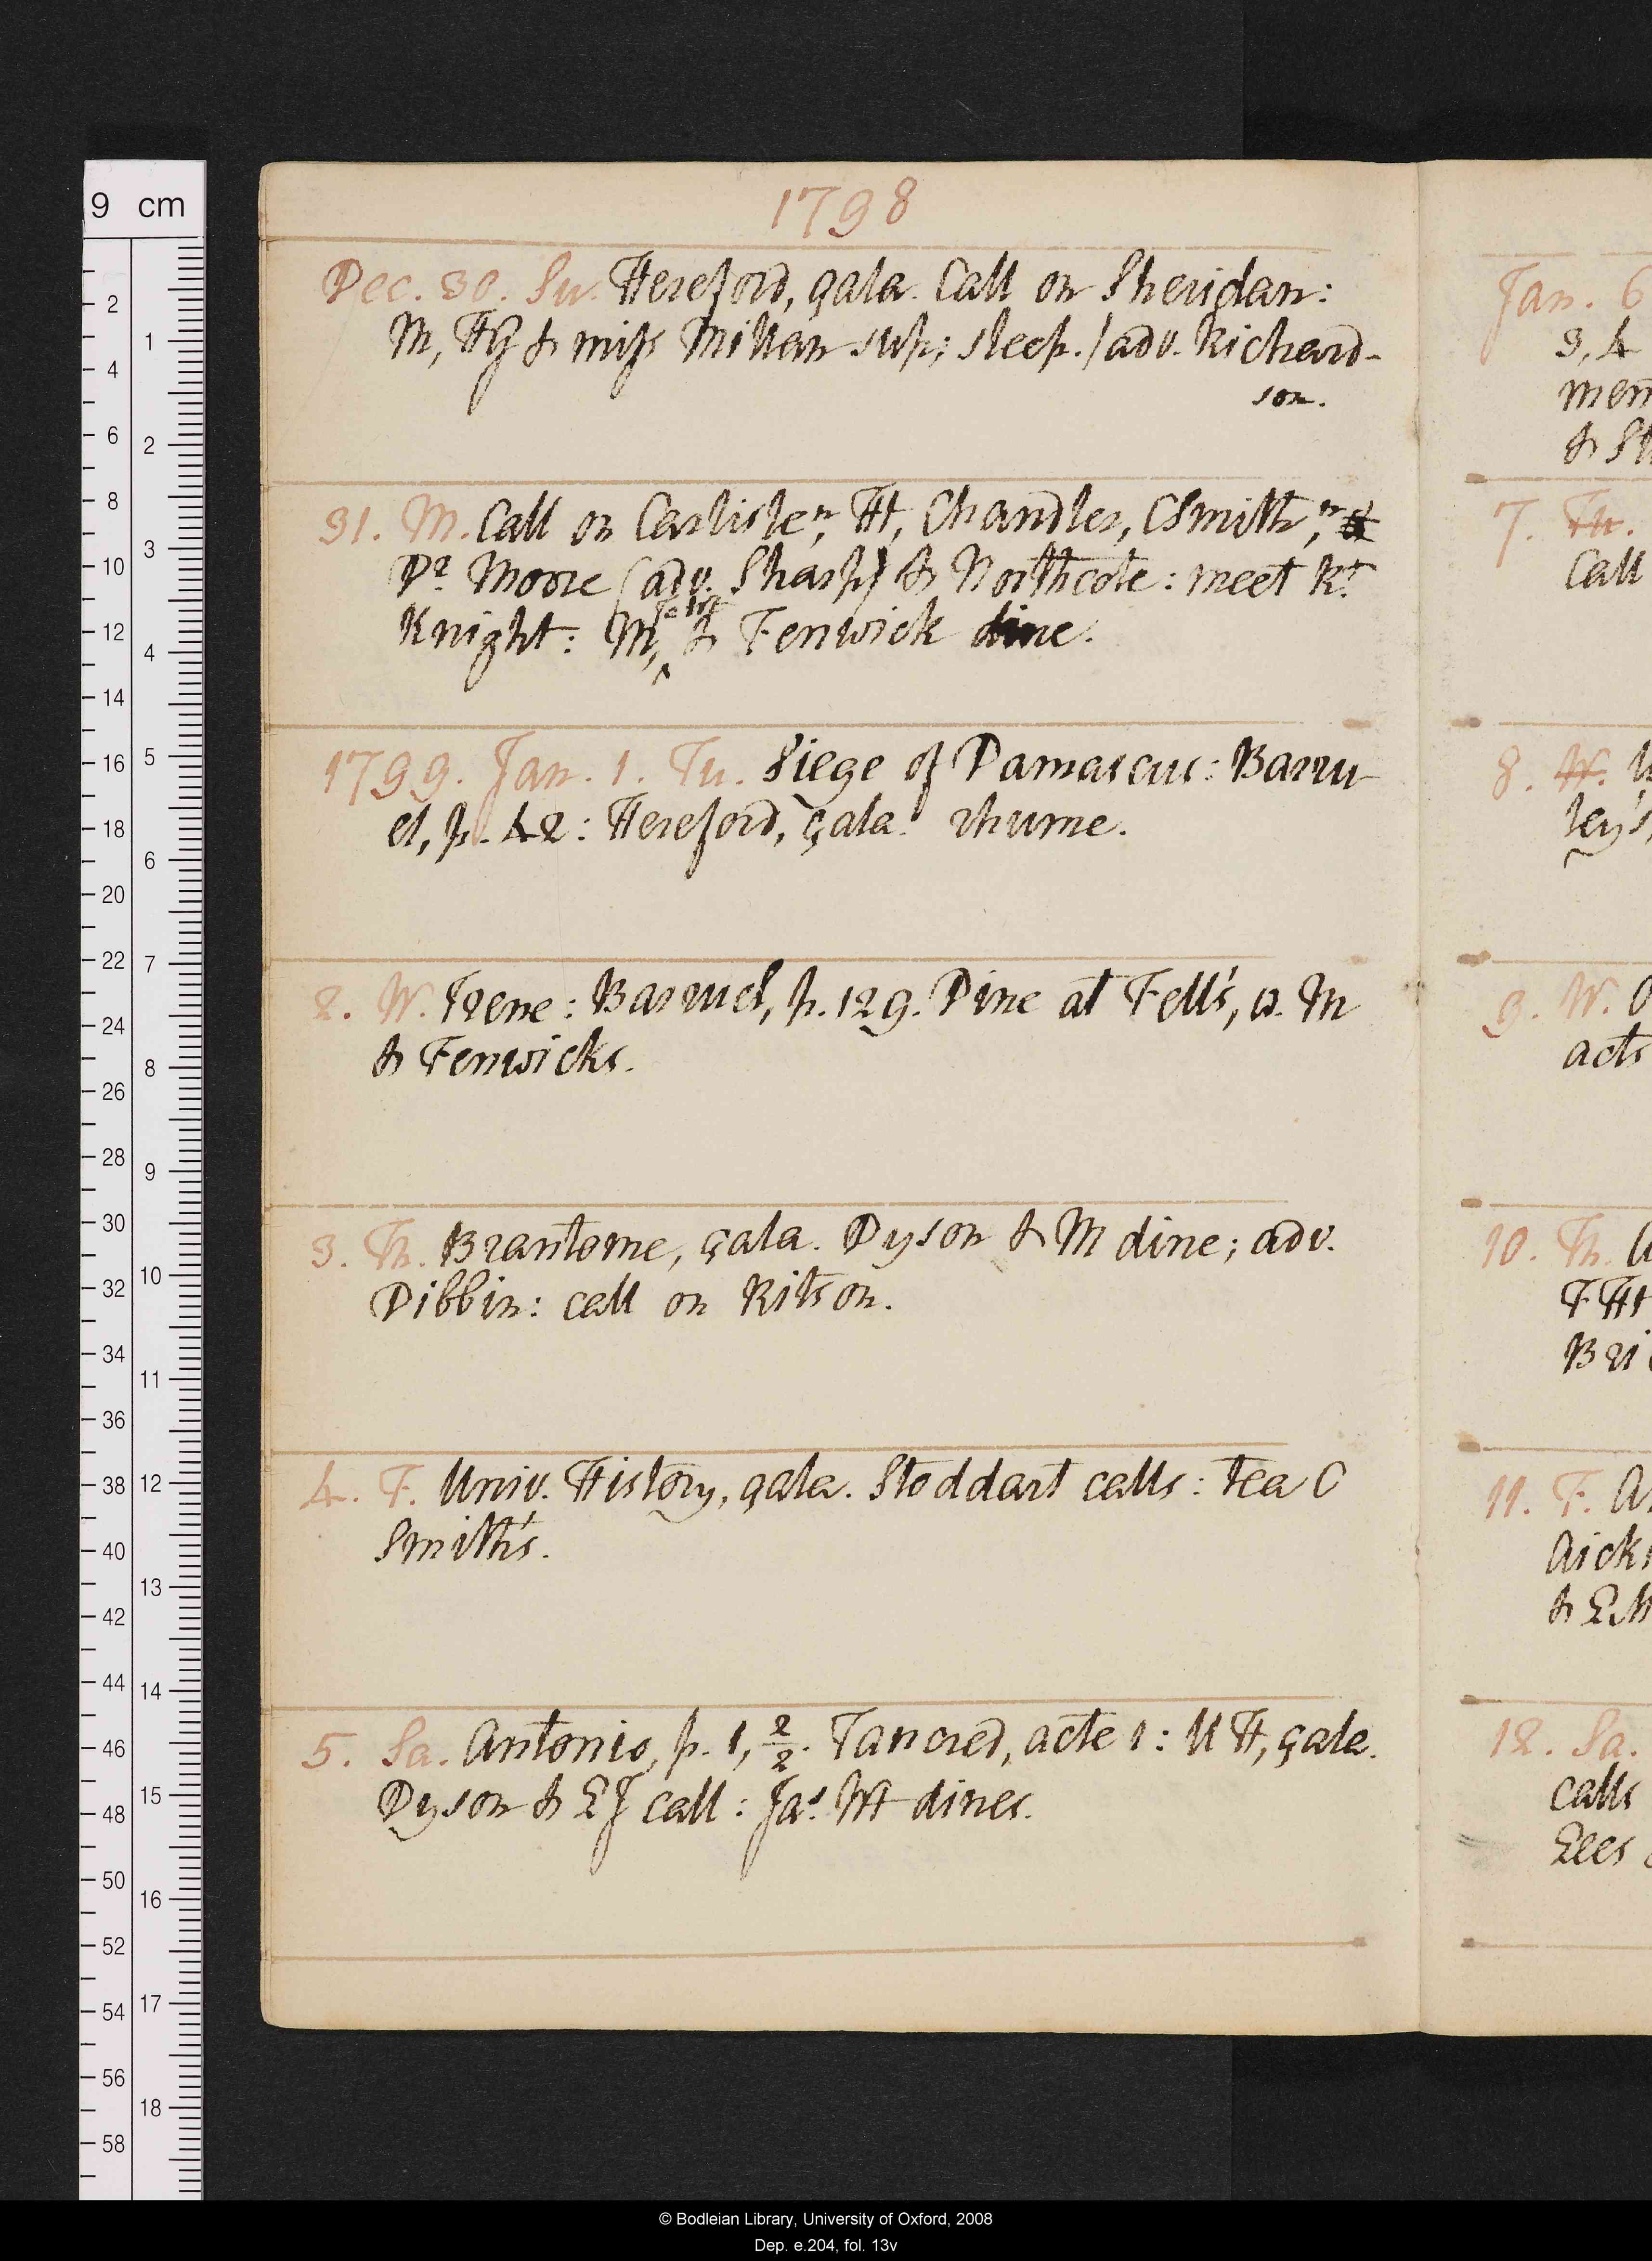 1798
Dec. 30. Su. Hereford, çala. Call on Sheridan:
M, HG & miss Millan sup; sleep. / adv. Richard-
son.
31. M. Call on Carlisle n, Ht, Chandler, CSmith n, &
Dr Moore (adv. Sharp) & Northcote: meet Rt
Knight: M, Jas Wt & Fenwick dine.
1799. Jan. 1. Tu. Siege of Damascus: Barru-
el, p. 42: Hereford, çala. rhume.
2. W. Irene: Barruel, p. 129. Dine at Fell's, w. M
& Fenwicks.
3. Th. Brantome, çala. Dyson & M dine; adv.
Dibbin: call on Ritson.
4. F. Univ. History, çala. Stoddart calls: tea C
Smith's.
5. Sa. Antonio, p. 1, 2/2. Tancred, acte 1: U H, çala.
Dyson & EJ call: Jas Wt dines.
Jan. 6
3, 4
mem
& St
7. Tu.
Call
8. W.
ley's
9. W.
acts
10. Th.
FHt
Bri
11. F.
Aick
&
12. Sa.
calls
Lees
9 cm
2
4
6
8
10
12
14
16
18
20
22
24
26
28
30
32
34
36
38
40
42
44
46
48
50
52
54
56
58
1
2
3
4
5
6
7
8
9
10
11
12
13
14
15
16
17
18
© Bodleian Library, University of Oxford, 2008
Dep. e.204, fol. 13v